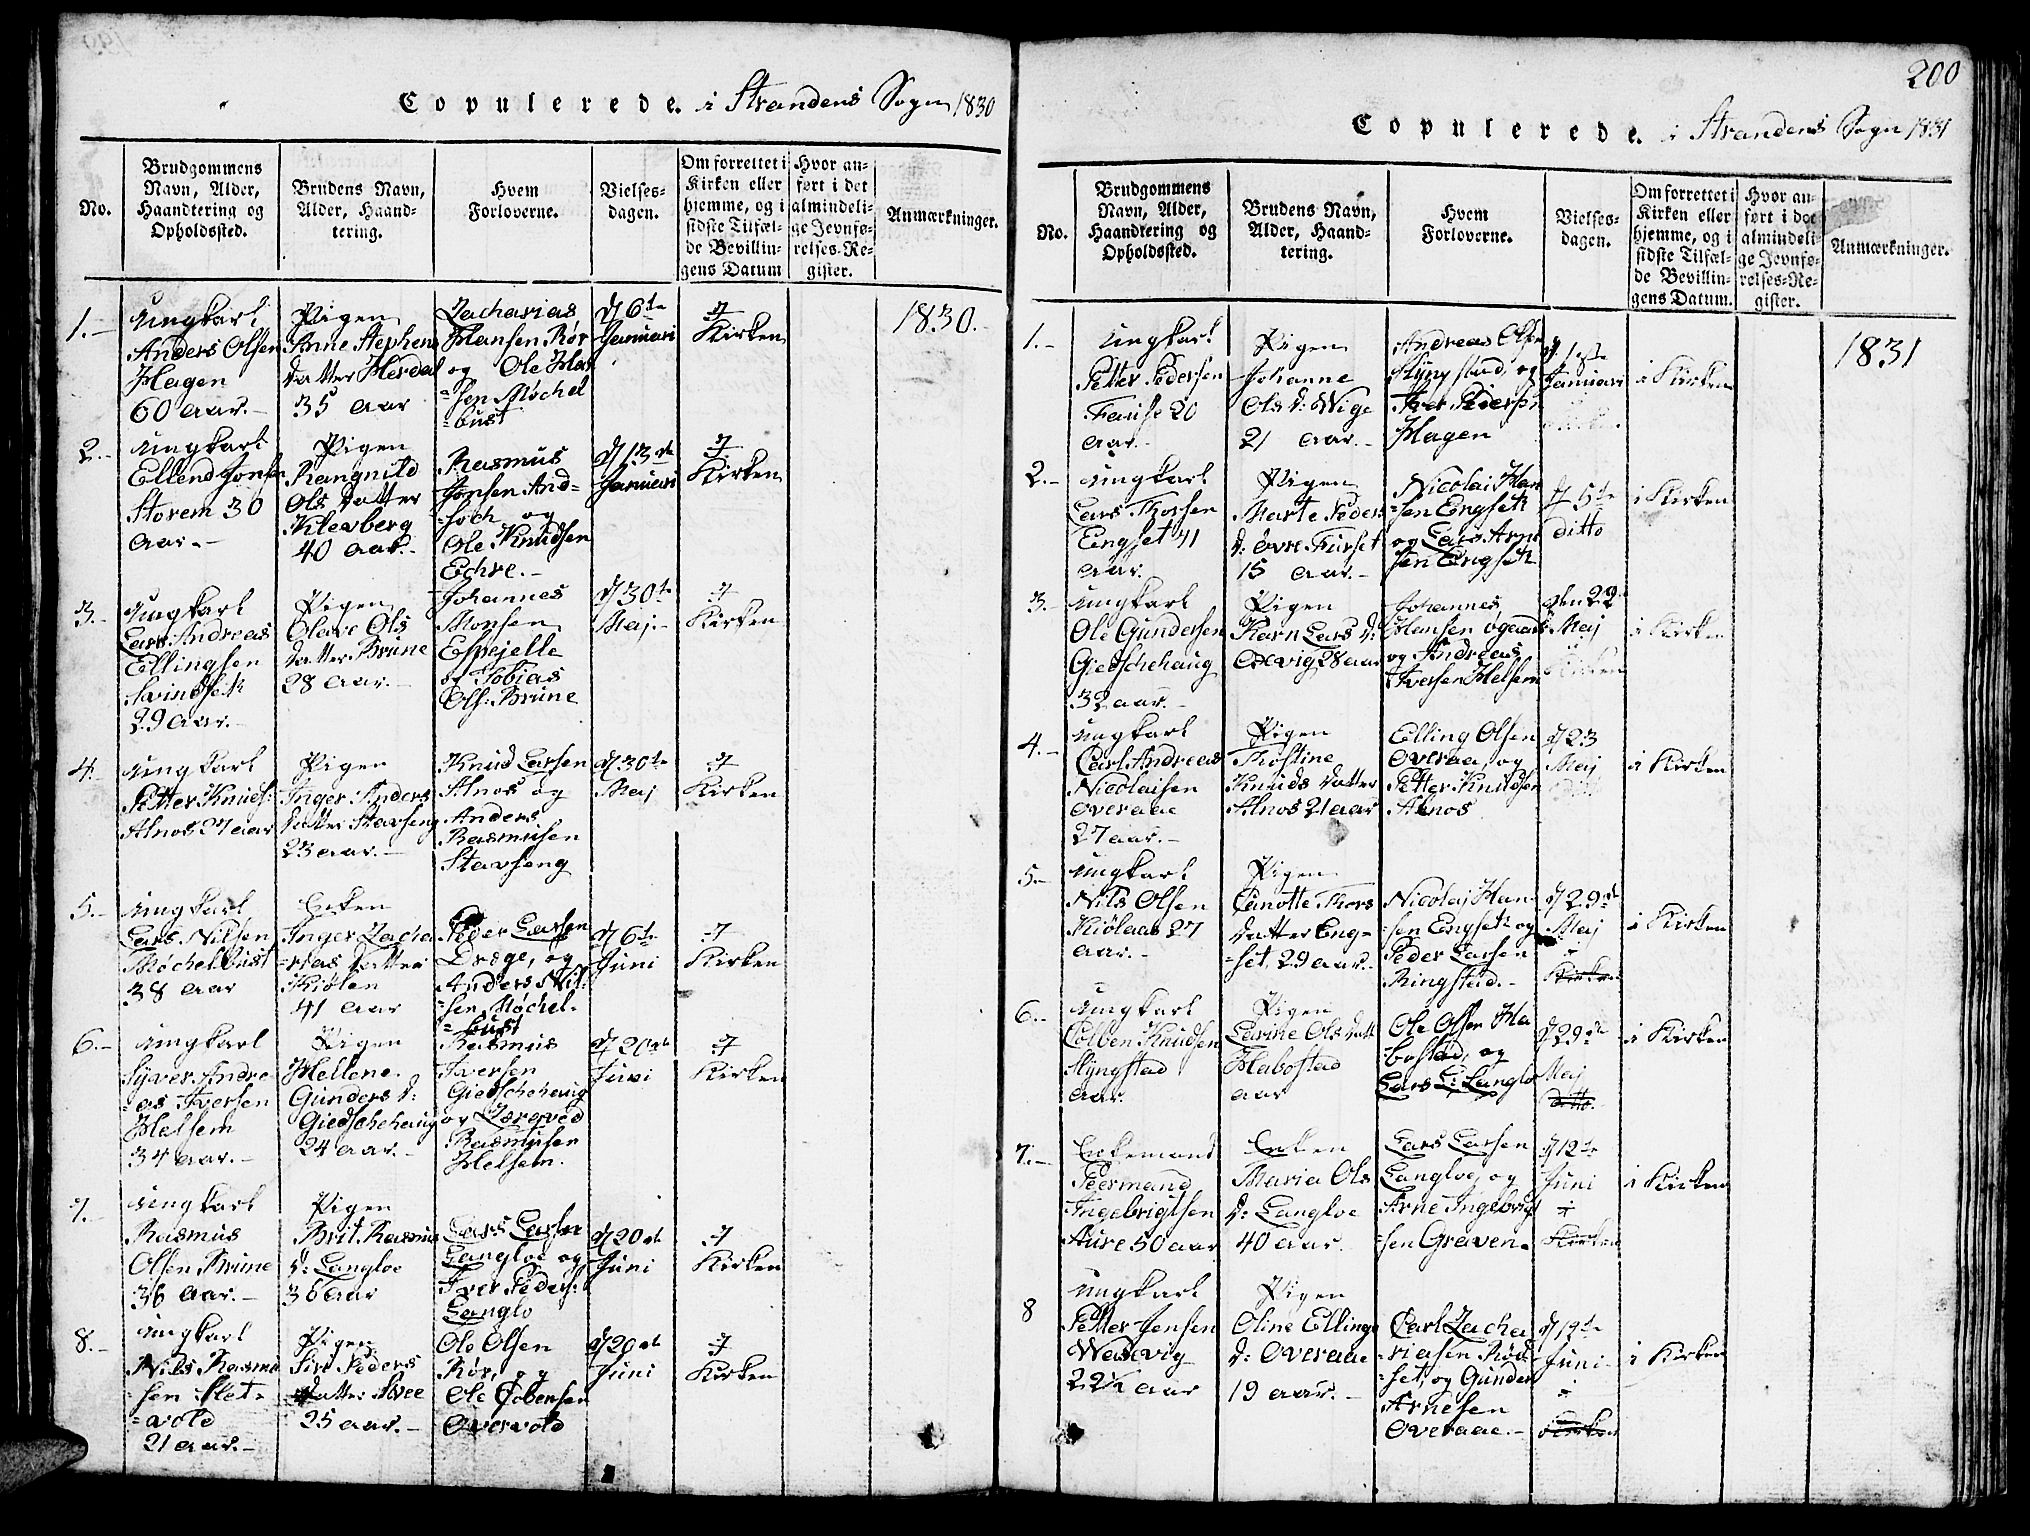 Copulerede. i Strandens Sogn 1830
No.
Brudgommens
Navn, Alder,
Haandtering og
Opholdssted.
Brudens Navn,
Alder, Haand-
tering.
Hvem
Forloverne.
Vielses-
dagen.
Om forrettet i
Kirken eller
hjemme, og i
sidste Tilfæl-
de Bevillin-
gens Datum
Hvor an-
ført i det
almindeli-
ge Jevnfø-
relses-Re-
gister.
Anmærkninger.
1830.
1.
ungkarl
Anders Olsen
Hagen
60 aar.
Pigen
Anne Stephens
datter Herdal
35 aar
Zacharias
Hansen Rør
og Ole
=sen Møchel
=bust
d 6te
Januari
I
Kirken
2.
ungkarl
Ellend Jonsen
Storem 30
aar.
Pigen
Rangnild
Ols datter
Klevberg
40 aar.
Rasmus
Jonsen And-
og
Ole Knudsen
Echre.
d 13de
Januari
I
Kirken
3.
ungkarl
Lars Andreas
Ellingsen
Svindseth
29 aar.
Pigen
Olave Ols
datter Brune
28 aar.
Johannes
Monsen
Espejelle
og Tobias
Ols: Brune
d 30te
Maj.
I
Kirken
4.
ungkarl
Petter Knuds:
Alnos 27 aar
Pigen
Inger Anders
datter Stavseng
23 aar.
Knud Larsen
Alnos og
Anders
Rasmusen
Stavseng
d 30te
Maj
I
Kirken
5.
ungkarl
Lars Nilsen
Møchelbust
38 aar
Enken
Inger Zacha
=rias datter
Kiølen
41 aar
Peder Larsen
Dræge, og
Anders Nil-
=sen Møchel-
=bust
d 6te
Juni
I
Kirken
6.
ungkarl
Syver Andre
=as Iversen
Helsem
34 aar.
Pigen
Hellene
Gunders d:
Giedschehaug
24 aar.
Rasmus
Iversen
Giedschehaug
og
Rasmusen
Helsem.
d 20de
Juni
I
Kirken
7.
ungkarl
Rasmus
Olsen Brune
36 aar.
Pigen
Brit Rasmus
d: Langloe
36 aar
Lars Larsen
Langloe og
Iver Peders:
Langlo
d 20de
Juni
I
Kirken
8.
ungkarl
Nils Rasmu
sen Slet-
=vold
21 aar.
Pigen
Siri Peders
datter
25 aar.
Ole Olsen
Rør, og
Ole Cobensen
Overvold
d 20de
Juni
I
Kirken
200
Copulerede. i Strandens Sogn 1831
No.
Brudgommens
Navn, Alder,
Haandtering og
Opholdssted.
Brudens Navn,
Alder, Haand-
tering.
Hvem
Forloverne.
Vielses-
dagen.
Om forrettet i
Kirken eller
hjemme, og i
sidste Tilfæl-
de Bevillin-
gens Datum.
Hvor an-
ført i det
almindeli-
ge Jevnfø-
relses-Re-
gister.
Anmærkninger.
1831
1.
ungkarl
Petter Pedersen
Fause 20
aar.
Pigen
Johanne
Ols d: Wige
21 aar.
Andreas Olsen
Slyngstad, og
Iver Pedersen
Hagen
d 1ste
Januari
i Kirken
2.
ungkarl
Lars Thorsen
Engset 41
aar.
Pigen
Marte Peders
d: øvre Furset
15 aar.
Nicolai Han
=sen Engseth
og Lars Arne
sen Engseth
d 5te
ditto
i Kirken
3.
ungkarl
Ole Gundersen
Giedschehaug
32 aar.
Pigen
Karn Lars d:
28 aar
Johannes
Hansen
og Andreas
Iversen Helsem
den 22
Maj
i Kirken
4.
ungkarl
Carl Andreas
Nicolaisen
Overaae
27 aar.
Pigen
Trostine
Knuds datter
Alnos 21 aar
Elling Olsen
Overaa, og
Petter Knudsen
Alnos
d 23
Maj
i Kirken
5.
ungkarl
Nils Olsen
Kiølaas 27
aar.
Pigen
Canotte Thors
datter Eng-
=set 29 aar.
Nicolaj Han-
=sen Engseth og
Peder Larsen
Ringstad.
d 29de
Maj
i
Kirken
i Kirken
6.
ungkarl
Colben Knudsen
Slyngstad
aar
Pigen
Larine Ols datt
Habostad
aar
Ole Olsen Ha
=bostad, og
Lars L: Langlo
d 29de
Maj
ditto.
i Kirken
7.
Enkemand
Peermand
Ingebrigtsen
Aure 50 aar
Enken
Maria Ols
d: Langloe
40 aar.
Lars Larsen
Langloe, og
Arne Ingebrigt
=sen Graven.
d 12te
Juni
i
Kirken
i Kirken
8
ungkarl
Petter Jensen
Wedvig
22½ aar
Pigen
Oline Ellings
d: Overaae
19 aar.
Carl Zacha
=riasen Rød-
=set, og Gunder
Arnesen
Overaae.
d 12te
Juni
i
Kirken
i Kirken